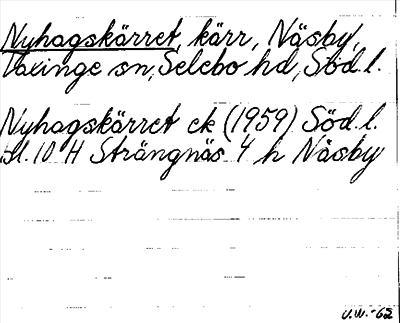 Nyhagskärret, kärr, Näsby,
Taxinge sn, Selebo hd, Söd. l.
Nyhagskärret ek (1959) Söd. l.
bl. 10 H Strängnäs 4 h Näsby
U.W.-62